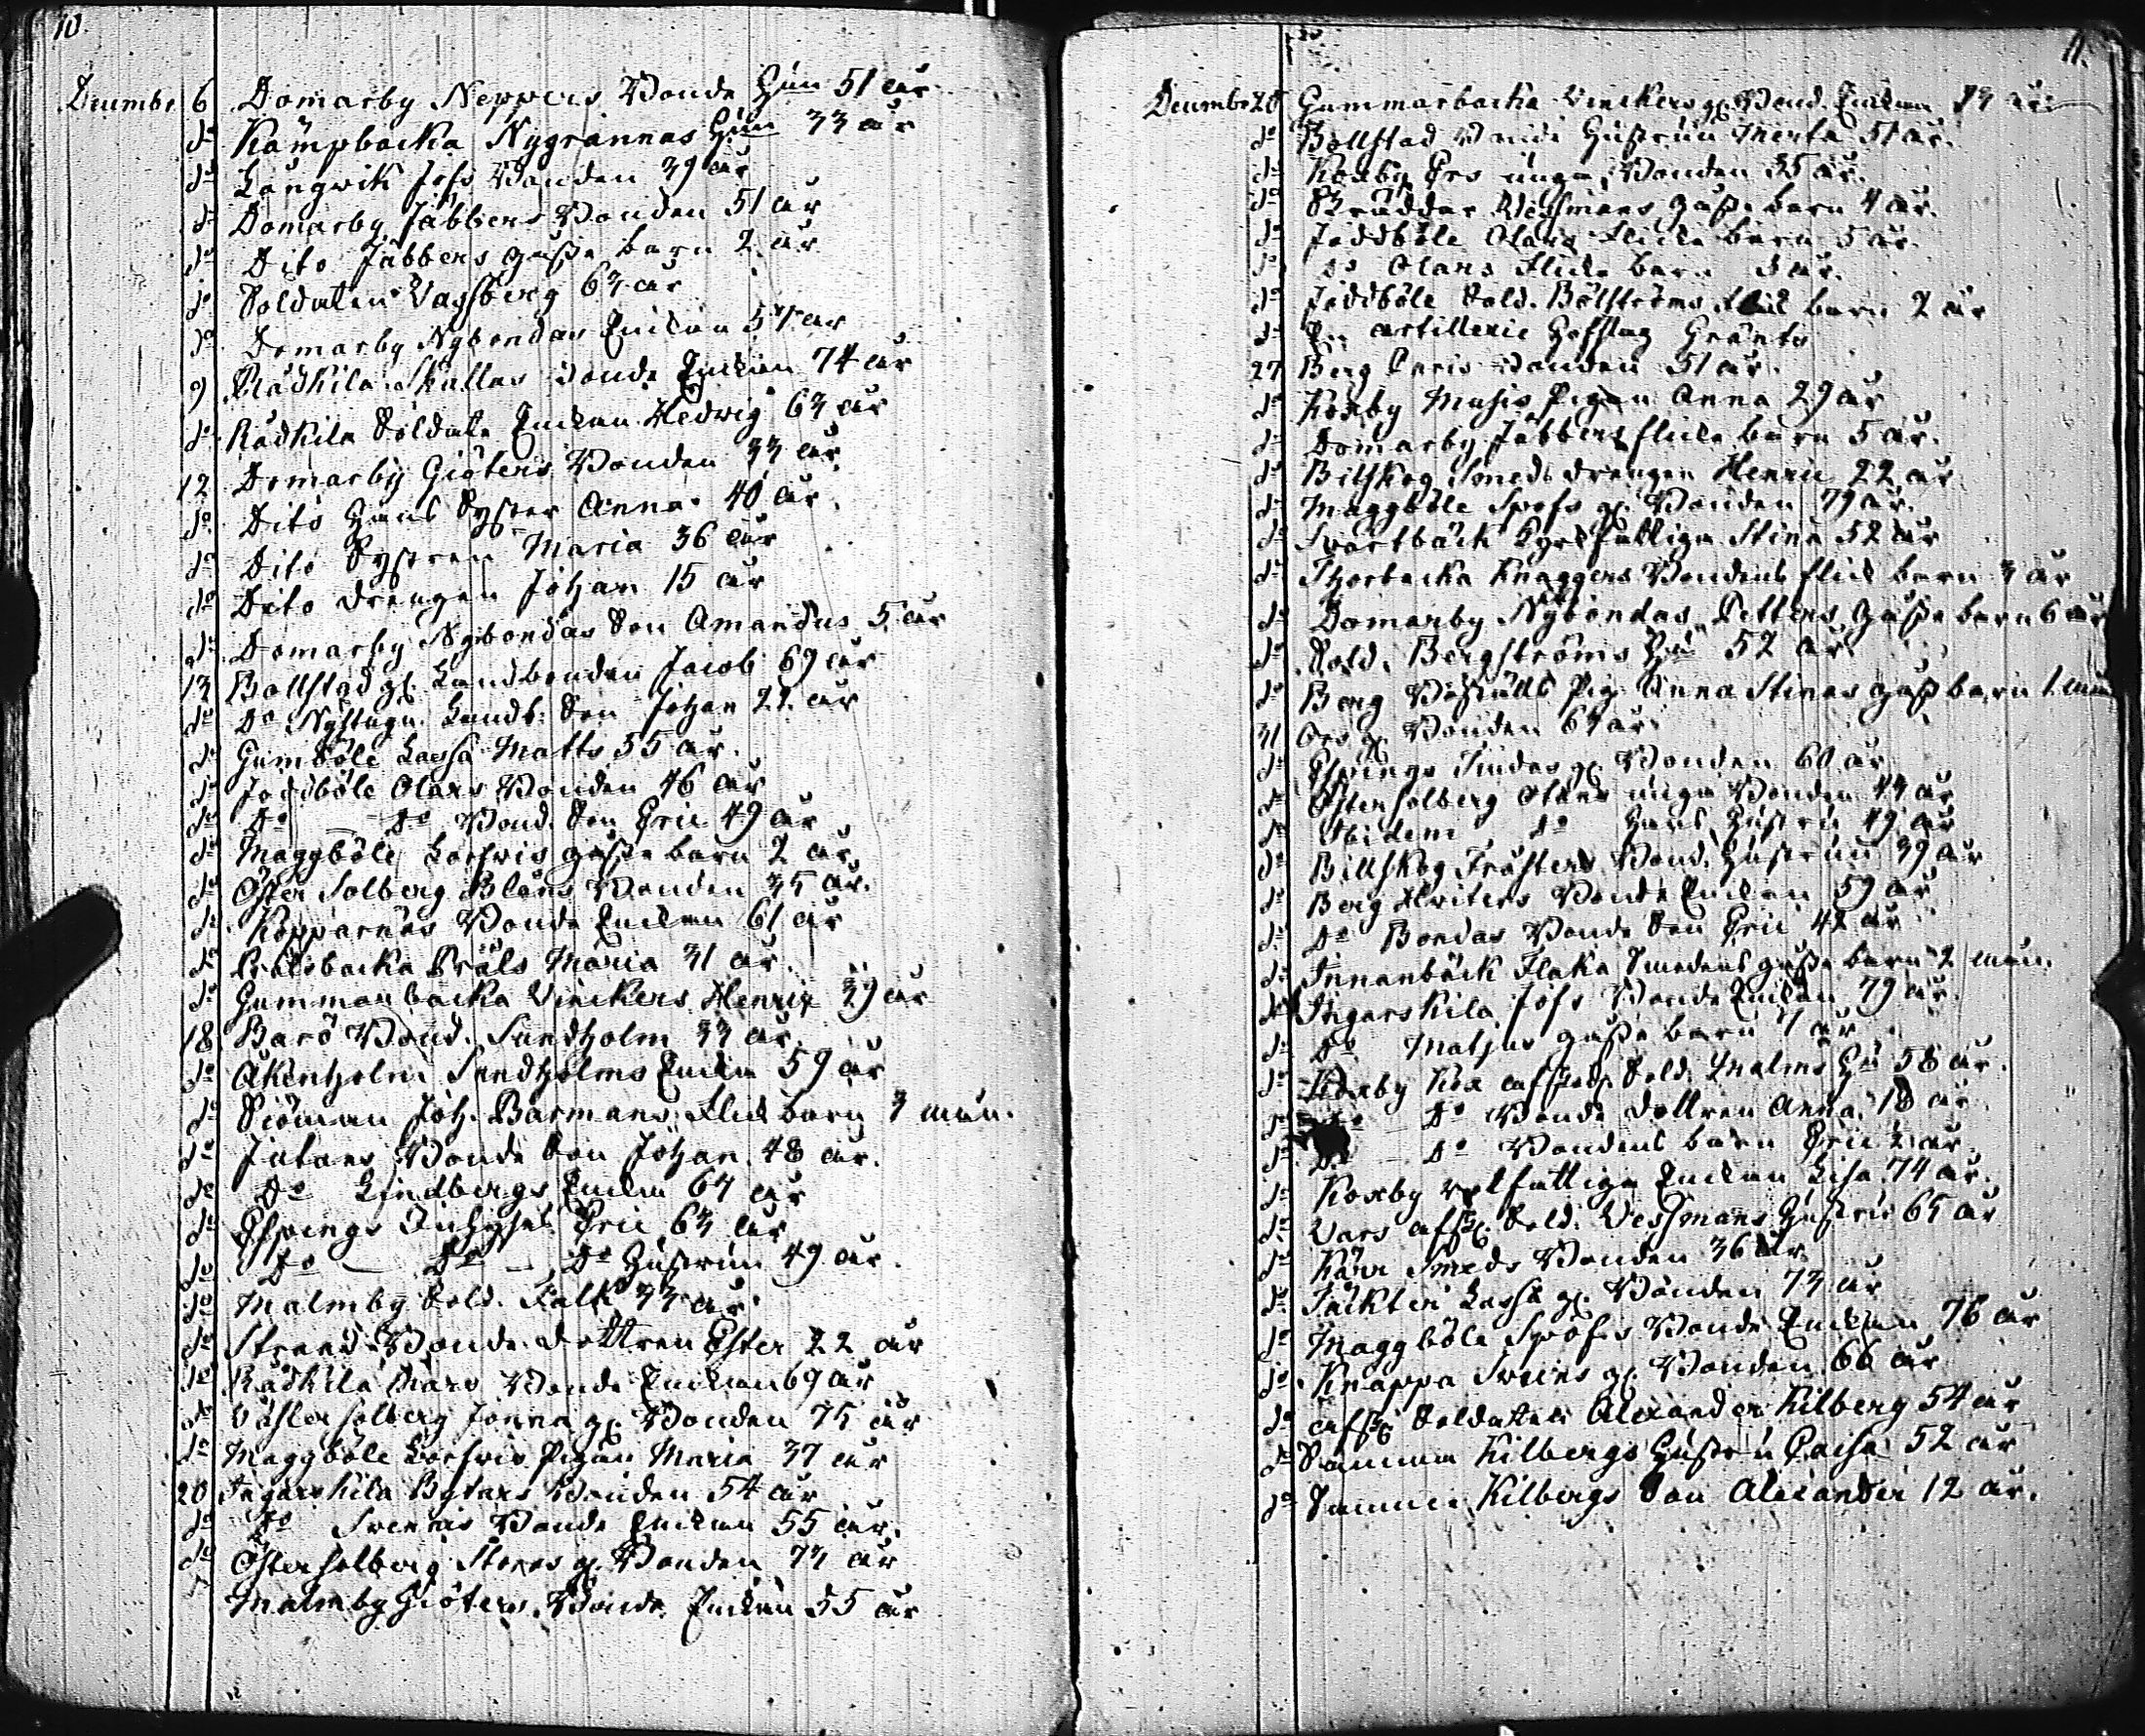 10.
Decembr. 6 Domarby Neppers Bonde Hustru 51 år
do Kämpbacka Nygrännas Hustru 33 år
do Långwik Jofs Bonden 39 år
do Domarby Jäbbers Bonden 51 år
do Dito Jäbbers gåsse barn 2 år
do Soldaten Vassberg 63 år
do Domarby Nybondas Enckan 57 år
9 Rådkila Skallas Bonde Enckan 74 år
do Rådkila Soldate Enckan Hedwig 63 år
12 Domarby Giöters Bonden 33 år
do Dito Hans Syster Anna 40 år
do Dito Systren Maria 36 år
do Dito drengen Johan 15 år
do Domarby Nybondas Son Amandus 5 år
13 Bollstad gl. Landbonden Jacob 69 år
do Do Nystugu Landb: Son Johan 22 år
do Gumböle Lassa Matts 55 år.
do Joddböle Olars Bonden 46 år
do Do Do Bond. Son Eric 49 år
do Maggböle Korfvis gåsse barn 2 år
do Öster Solberg Blåns Bonden 35 år.
do Kopparnäs Bonde Enckan 61 år
do Prålsbacka Pråls Maria 31 år
do Gummanbacka Vinckers Henric 29 år
18 Barö Bond. Sundholm 33 år.
do Åkenholm Sundholms Enckan 59 år
do Siöman Joh. Barmans Flick barn 3 mån.
do Jutans Bonde Son Johan 48 år.
do Do Lindbergs Enckan 64 år
do Espings Inhyses Eric 63 år
do Do Do Do Hustrun 49 år.
do Malmby Sold. Falk 33 år
do Strand Bonde dottren Ester 22 år
do Rådkila Bonde Enckan 69 år
do Västersolberg Jonna gl. Bonden 75 år
do Maggböle Korfvis Pigan Maria 37 år
20 Ingarskila Bytars Bonden 54 år
do Do Svenas Bonde Enckan 55 år.
do Östersolberg Stores gl. Bonden 73 år
Malmby Giöters Bonde Enckan 55 år
11.
Decembr 20 Gummarbacka Vinckers gl. Bond. Enckan 73 år
do Bollstad Bonde Hustrun Merta 51 år.
do Koxby Ers unga Bonden 35 år.
do Skräddar Wessmans gåsse barn 4 år.
do Joddböle Olars Flicke barn 5 år.
do Do Olars Flicke barn 3 år.
do Joddböle Sold. Bölströms Flick barn 2 år
do artillerie Hofslag Gränts
27 Berg Peris Bonden 51 år.
do Koxby Musis Pigan Anna 29 år
do Domarby Jäbbers flicke barn 5 år.
do Billskog Smeds drengen Henric 22 år
do Maggböle Spofs gl. Bonden 79 år.
do Svartbäck Kyrkfattiga Stina 52 år
do Thorbacka Knaggers Bondens flick barn 3 år
do Domarby Nybondas Petters gåsse barn 6 år
do Sold. Bergströms Hu 52 år
do Berg Pig. Anna Stinas gåss barn 1 mån
31 Ors gl. Bonden 64 år
do Espings Tindas gl. Bonden 60 år
do Östersolberg Olars unga Bonden 44 år
do Ibidem do Hans Hustru 49 år
do Billskog Tråsters Bond. Hustrun 39 år
do Berg Hviters Bonde Enckan 59 år
do Do Bondas Bonde Son Eric 42 år
do Innanbäck Flaka Smedens gåsse barn 2 mån.
do Ingarskila Jofs Bonde Enckan 79 år.
do Do Matjas gåsse barn 4 år
do Koxby Kox afsked. Sold. Malms Hu 58 år.
do Do Do Bonde dottren Anna 18 år
do Do Do Bondens barn Eric 2 år
do Koxby vtfattiga Enckan Lisa 74 år.
do Vars afsk. Sold. Wessmans Hustru 65 år
do Kärr Smeds Bonden 36 år
do Täckter Lassa gl. Bonden 73 år
do Maggböle Spofs Bonde Enckan 76 år
do Knappa Svens gl. Bonden 66 år
do afsk. Soldaten Alexander Kilberg 54 år
do Samma Kilbergs Hustru Caisa 52 år
do Samma Kilbergs Son Alexander 12 år.